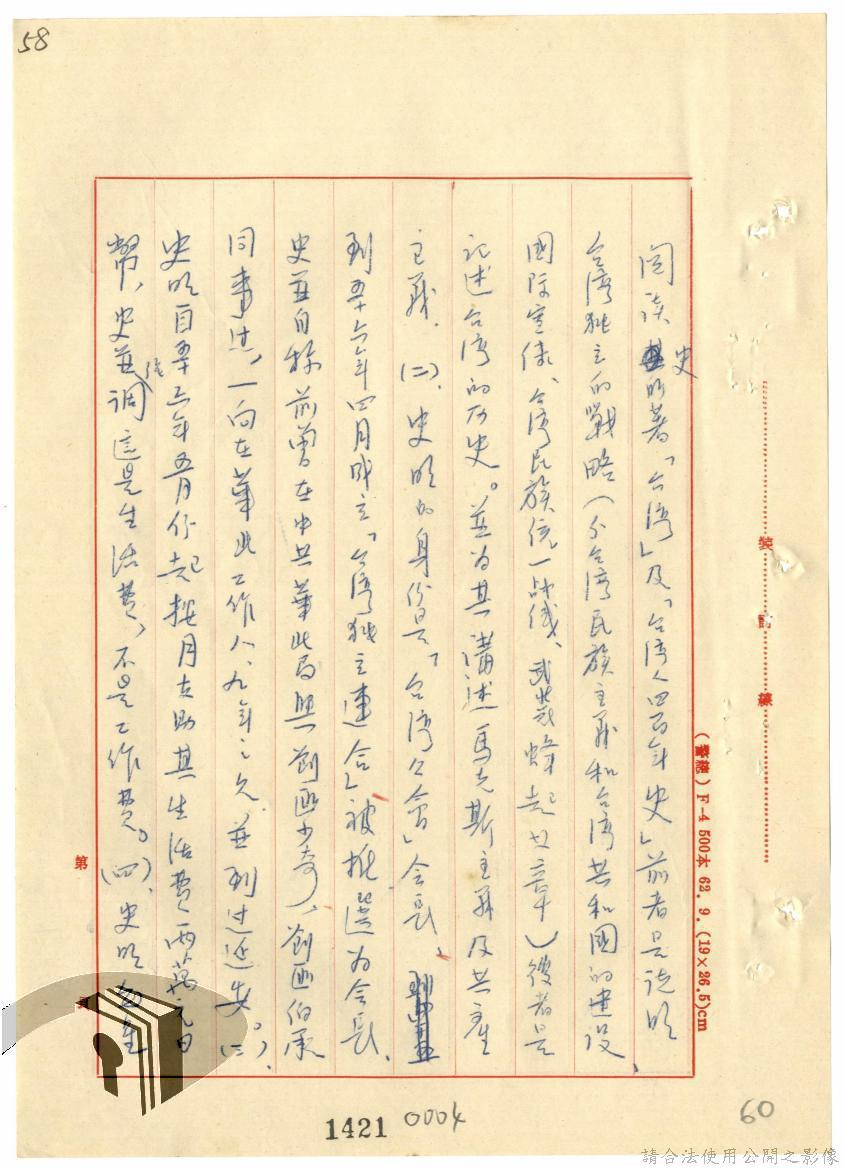 58
閲读史明著「台湾」及「台湾人四百年史」前者是说明
台湾独立的戰略（分台湾民族主義和台湾共和國的建设、
國际宣传、台湾民族统一战线、武装蜂起七章）後者是
记述台湾的历史。並为其講述馬克斯主義及共產
主義。(二)、史明的身份是「台湾公會」会長、
到五十六年四月成立「台湾独立連合」被推選为会長、
史並自称前曾在中共華北局與劉匪少奇、劉匪伯承
同事过，一向在華北工作八、九年之久並到过延安。(三)、
史明自五十六年五月份起按月支助其生活费两萬元日
幣，史並强調這是生活费，不是工作费。(四)、史明
裝
訂
線
(警總) F-4 500本 62. 9. (19×26.5)cm
第
頁
1421 0004
60
請合法使用公開之影像